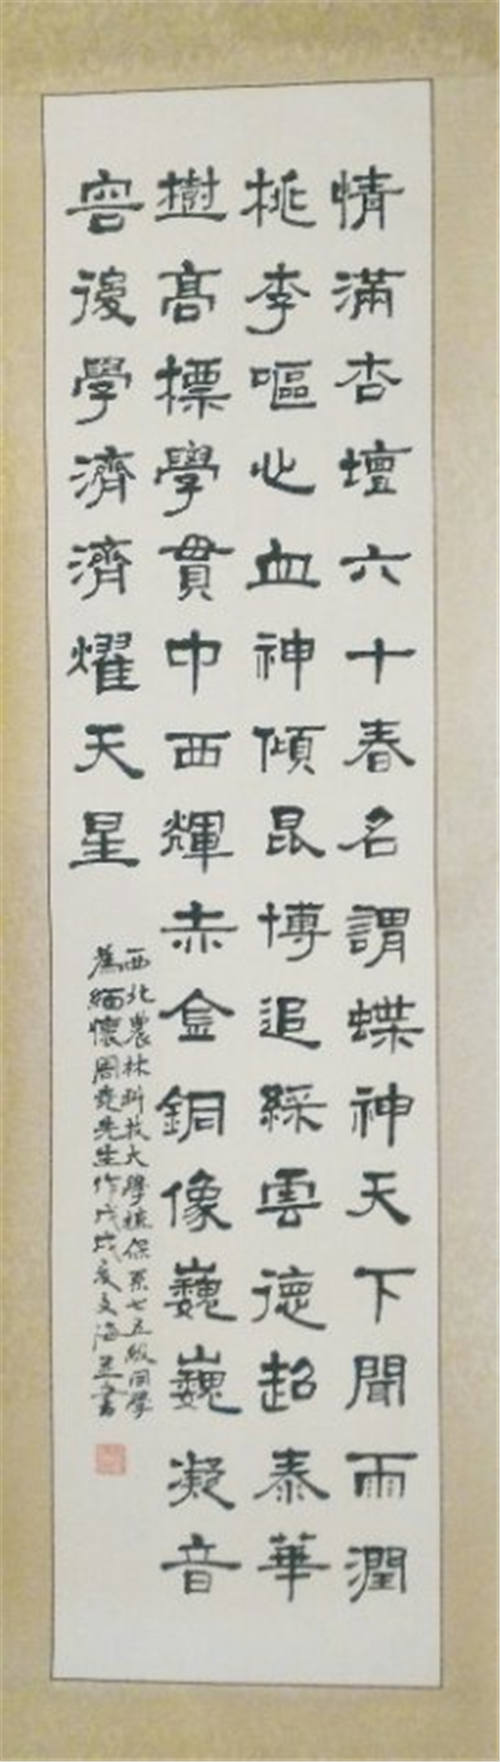 情滿杏壇六十春名謂蝶神天下聞雨潤
桃李嘔心血神傾昆博追綵雲德超泰華
樹高標學貫中西輝赤金銅像巍巍凝音
容後學濟濟耀天星
西北農林科技大學植保系七五級同學
為緬懷周堯先生作戊戌夏文海並書